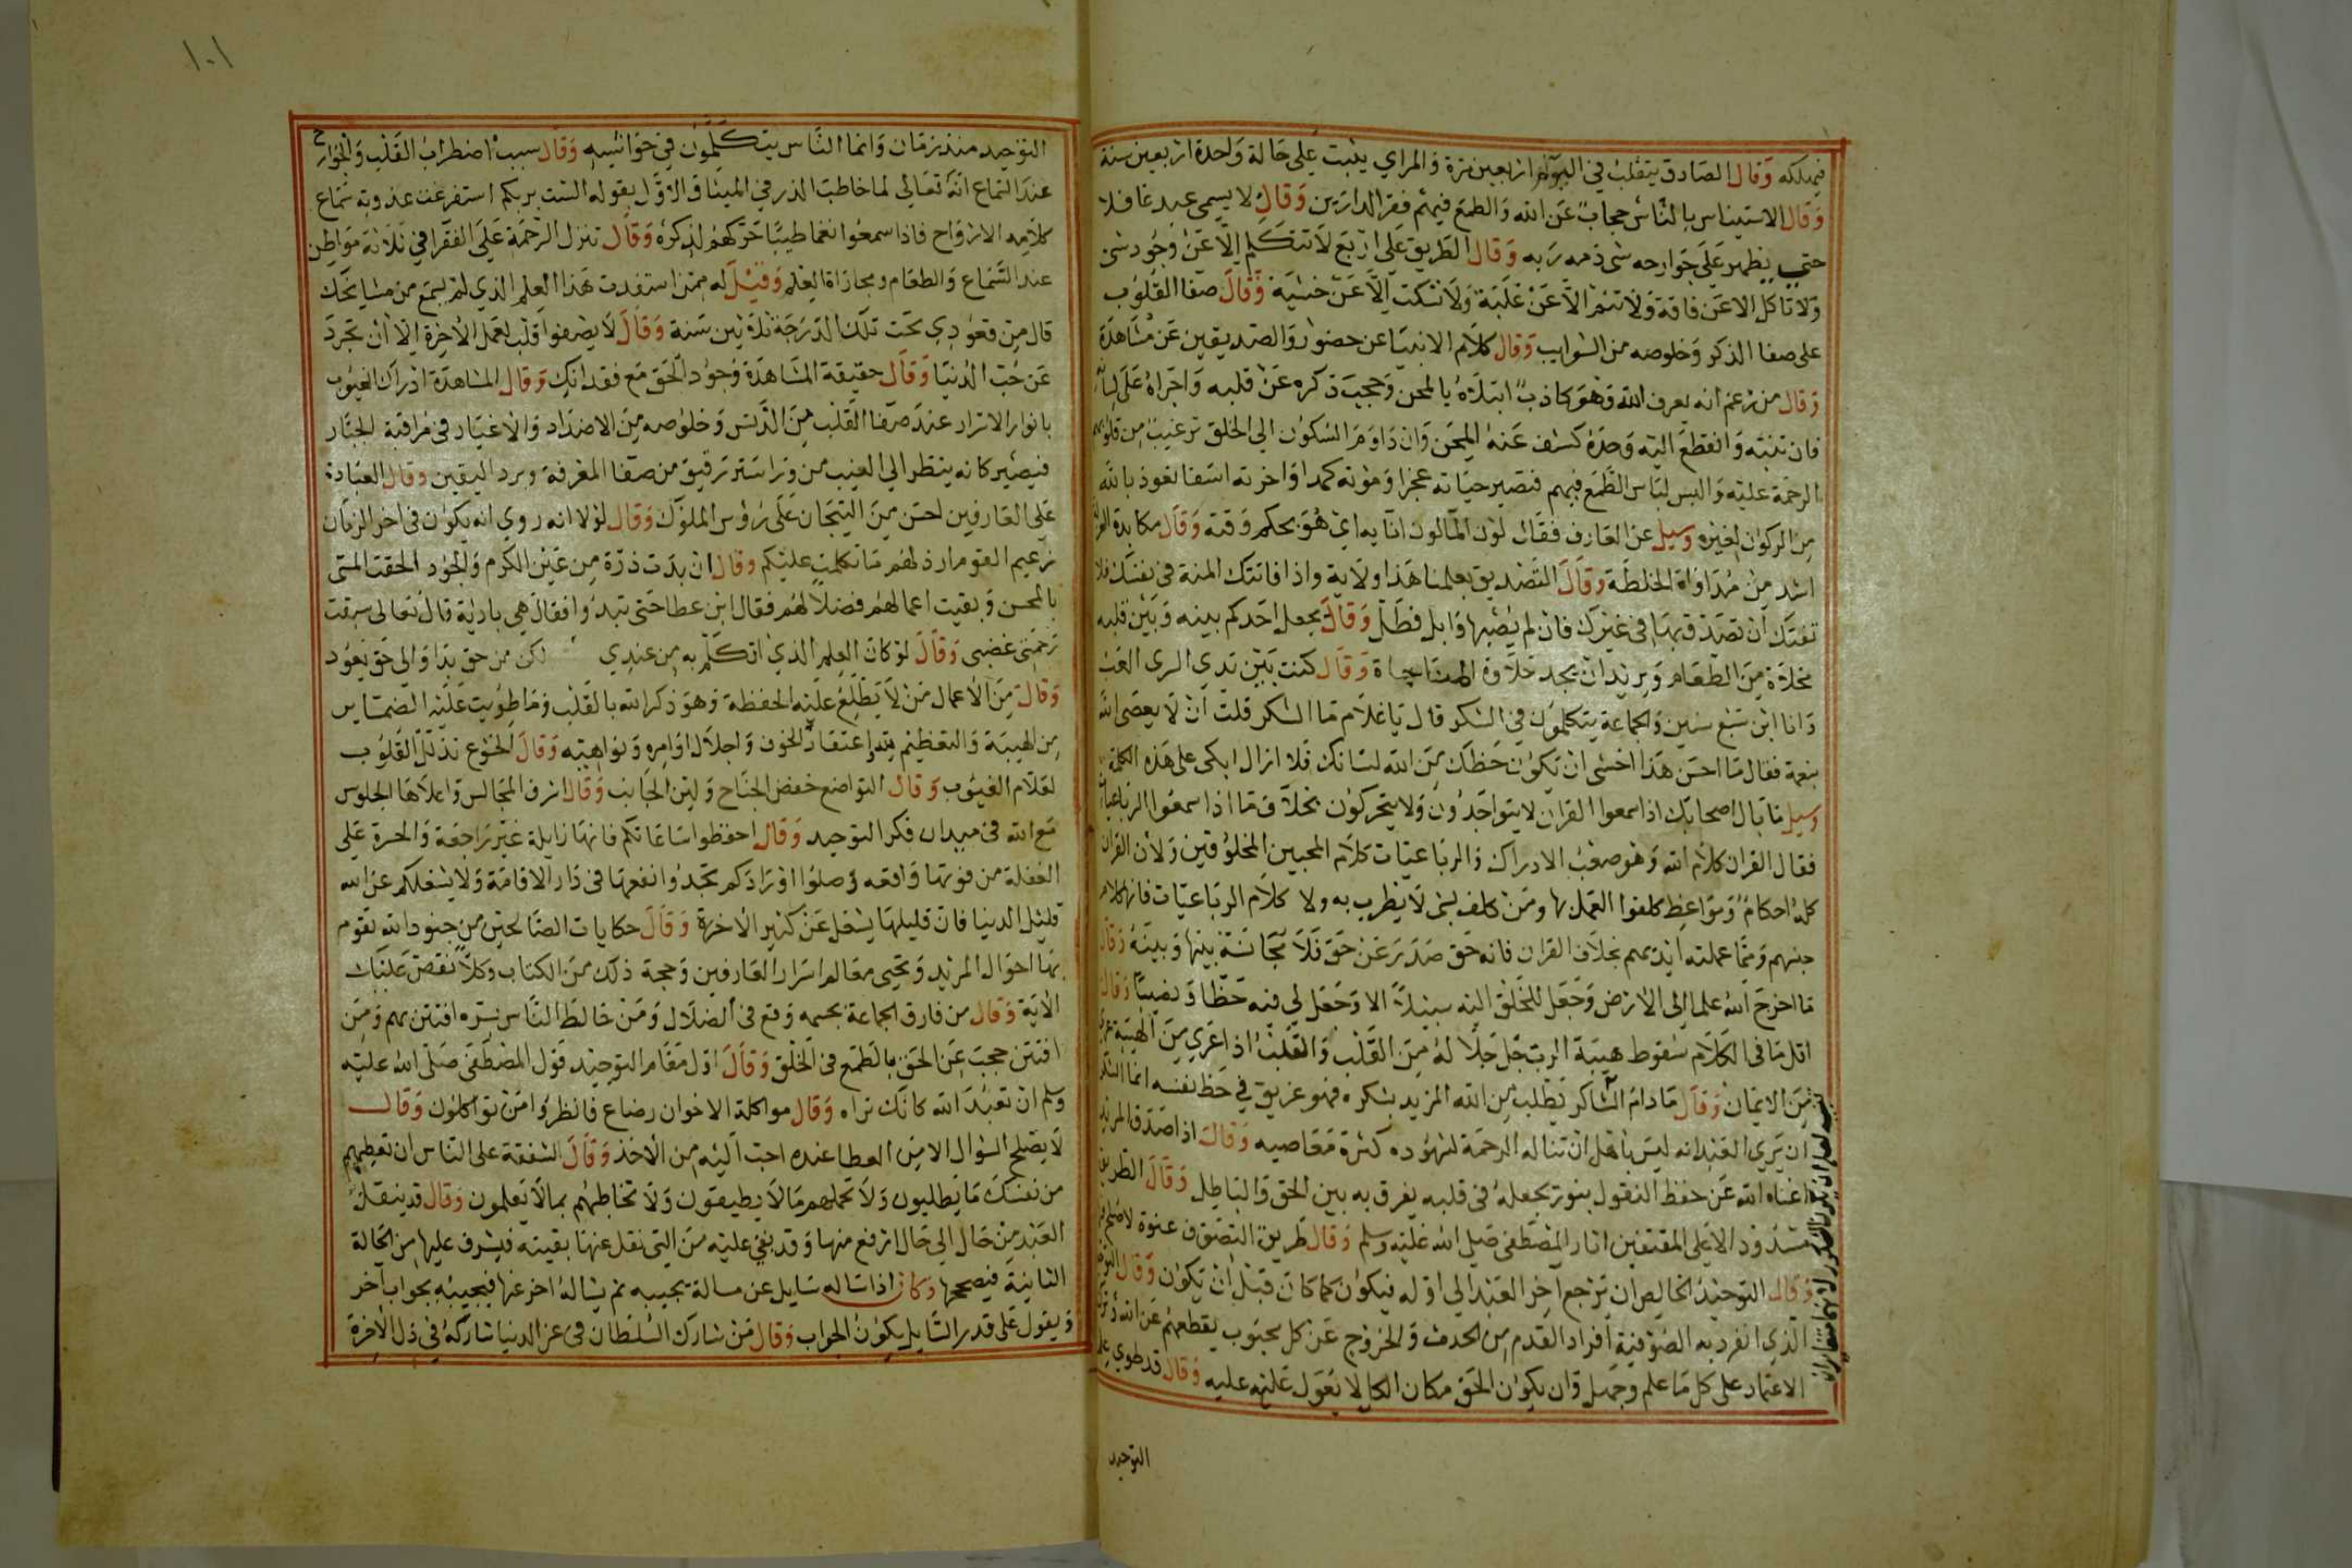 فيهلكه وقال الصادق يتقلب في اليوم اربعين مرة والمراي يثبت على حالة واحدة اربعين سنة
وقال الاستيناس بالناس حجاب عن الله والطمع فيهم فقر الدارين وقال لا يسمى عبد غافلا
حتى يظهر على جوارحه شي ذمه ربه وقال الطريق على اربع لا تتكلم الا عن وجود شي
ولا تاكل الا عن فاقة ولا تنم الا عن غلبة ولا تسكت الا عن خشية وقال صفا القلوب
على صفا الذكر وخلوصه من الشوايب وقال كلام الانبيا عن حضور والصديقين عن مشاهدة
وقال من زعم انه يعرف الله وهو كاذب ابتلاه بالمحن وحجب ذكره عن قلبه واجراه على لسانه
فان تنبه وانقطع اليه وحده كشف عنه المحن وان داوم السكون الى الخلق نزعت من قلوبهم
الرحمة عليه والبس لباس الطمع فيهم فتصير حياته عجزا وموته كمدا واخرته اسفا نعوذ بالله
من الركون لغيره وسيل عن العارف فقال لون الما لون انايه اي هو بحكم وقته وقال مكابدة العزلة
اشد من مداواة الخلطة وقال التصديق بعلمنا هذا ولاية واذا فاتتك المنة في نفسك فلا
تفتك ان تصدق بها في غيرك فان لم يصبها وابل فطل وقال يجعل احدكم بينه وبين قلبه
مخلاة من الطعام ويريد ان يجد حلاوة المناجاة وقال كنت بين يدي السري العب
وانا ابن سبع سنين والجماعة يتكلمون في الشكر قال يا غلام ما الشكر قلت ان لا يعصى الله
بنعمة فقال ما احسن هذا اخشى ان يكون حظك من الله لسانك فلا ازال ابكي على هذه الكلمة
وسيل ما بال اصحابك اذا سمعوا القران لا يتواجدون ولا يتحركون بخلاف ما اذا سمعوا الرباعيات
فقال القران كلام الله وهو صعب الادراك والرباعيات كلام المحبين المخلوقين ولان القران
كله احكام ومواعظ كلفوا العمل بها ومن كلف بشي لا يطرب به ولا كلام الرباعيات فانها كلام
جنسهم ومما عملته ايديهم بخلاف القران فانه حق صدر عن حق فلا مجانسة بينها وبينه وقال
ما اخرج الله علما الى الارض وجعل للخلق اليه سبيلا الا وجعل لي فيه حظا ونصيبا وقال
اقل ما في الكلام سقوط هيبة الرب جل جلاله من القلب والقلب اذا عري من الهيبة عري
من الايمان وقال ما دام الشاكر يطلب من الله المزيد بشكره فهو غريق في حظ نفسه انما الشكر
ان يرى العبد انه ليس باهل ان تناله الرحمة لشهوده كثرة معاصيه وقال اذا صدق المريد
اغناه الله عن حفظ النقول بنور يجعله في قلبه يفرق به بين الحق والباطل وقال الطريق
مسدود الا على المقتفين اثار المصطفى صلى الله عليه وسلم وقال طريق التصوف عنوة لا صلح فيها
وقال التوحيد الخالص ان ترجع اخر العبد الى اوله فيكون كما كان قبل ان يكون وقال التوحيد
الذي انفرد به الصوفية افراد القدم من الحدث والخروج عن كل محبوب يقطعهم عن الله وترك
الاعتماد على كل ما علم وجهل وان يكون الحق مكان الكل لا يعول عليه وقال قد طوي علم
التوحيد
١٠١
التوحيد منذ زمان وانما الناس يتكلمون في حواشيه وقال سبب اضطراب القلب والجوارح
عند السماع انه تعالى لما خاطب الذر في الميثاق الاول بقوله الست بربكم استفرغت عذوبة سماع
كلامه الارواح فاذا سمعوا نغما طيبا حركهم لذكره وقال تنزل الرحمة على الفقرا في ثلاثة مواطن
عند السماع والطعام ومجاراة العلم وقيل له ممن استفدت هذا العلم الذي لم يسمع من مشايخك
قال من قعودي تحت تلك الدرجة ثلاثين سنة وقال لا يصفوا قلب لعمل الاخرة الا ان تجرد
عن حب الدنيا وقال حقيقة المشاهدة وجود الحق مع فقدانك وقال المشاهدة ادراك الغيوب
بانوار الاسرار عند صفا القلب من الدنس وخلوصه من الاضداد والاغيار في مراقبة الجبار
فيصير كانه ينظر الى الغيب من ورا ستر رقيق من صفا المعرفة وبرد اليقين وقال العبادة
على العارفين احسن من التيجان على رؤوس الملوك وقال لولا انه روي انه يكون في اخر الزمان
زعيم القوم ارذلهم ما تكلمت عليكم وقال ان بدت ذرة من عين الكرم والجود الحقت المسي
بالمحسن وبقيت اعمالهم فضلا لهم فقال ابن عطا حتى تبدوا فقال هي بادية قال تعالى سبقت
رحمتي غضبي وقال لو كان العلم الذي اتكلم به من عندي لكن من حق بدا والى حق يعود
وقال من الاعمال من لا يطلع عليه الحفظة وهو ذكر الله بالقلب وما طويت عليه الضماير
من الهيبة والتعظيم لله واعتقاد الخوف واجلال اوامره ونواهيه وقال الخشوع تذلل القلوب
لعلام الغيوب وقال التواضع خفض الجناح ولين الجانب وقال اشرف المجالس واعلاها الجلوس
مع الله في ميدان فكر التوحيد وقال احفظوا ساعاتكم فانها زايلة غير راجعة والحسرة على
الغفلة من فوتها واقعه وصلوا اورادكم تجدوا نفعها في دار الاقامة ولا يشغلكم عن الله
قليل الدنيا فان قليلها يشغل عن كثير الاخرة وقال حكايات الصالحين من جنود الله تقوم
بها احوال المريد وتحيى معالم اسرار العارفين وحجة ذلك من الكتاب وكلا نقص عليك
الاية وقال من فارق الجماعة بجسمه وقع في الضلال ومن خالط الناس بسره افتتن بهم ومن
افتتن حجب عن الحق بالطمع في الخلق وقال اول مقام التوحيد قول المصطفى صلى الله عليه
وسلم ان تعبد الله كانك تراه وقال مواكلة الاخوان رضاع فانظروا من تواكلون وقال
لا يصلح السوال الا من العطا عنده احب اليه من الاخذ وقال الشفقة على الناس ان تعطيهم
من نفسك ما يطلبون ولا تحملهم ما لا يطيقون ولا تخاطبهم بما لا يعلمون وقال قد ينقل
العبد من حال الى حال ارفع منها وقد بقي عليه من التي نقل عنها بقيته فيشرف عليها من الحالة
الثانية فيصححها وكان اذا ساله سايل عن مسالة يجيبه ثم يساله اخر عنها فيجيبه بجواب اخر
ويقول على قدر السايل يكون الجواب وقال من شارك السلطان في عز الدنيا شاركه في ذل الاخرة